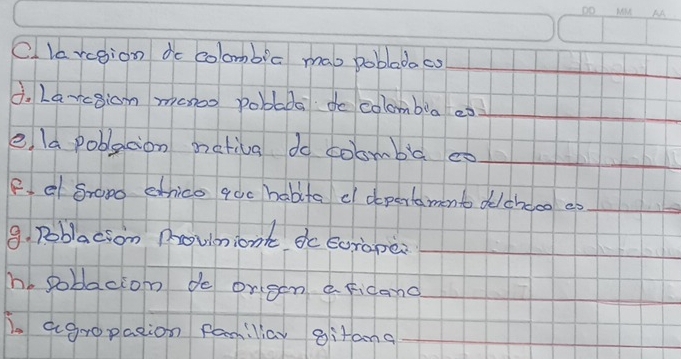 DD MM AA
C. la region de colombia mas poblada es
d. La region menos poblada de colombia es
e. la poblacion nativa de colombia es
f. el grupo etnico que habita el departamento delchoco es
g. Poblacion Proviniente de Europea
h. poblacion de origen africano
i. agropasion familiar gitana